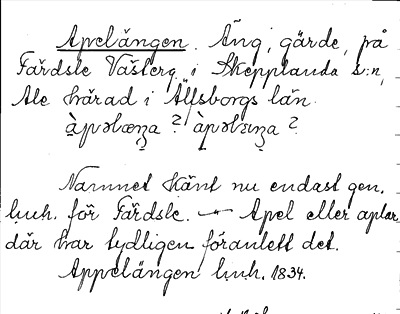 Apelängen. Äng, gärde, på
Färdsle Västerg. i Skepplanda s:n,
Ale härad i Älfsborgs län.
àpəlæŋa ? àpəlɛŋa ?
Namnet känt nu endast gen.
l.u.h. för Färdsle. — Apel eller aplar
där har tydligen föranlett det.
Appelängen l.u.h. 1834.